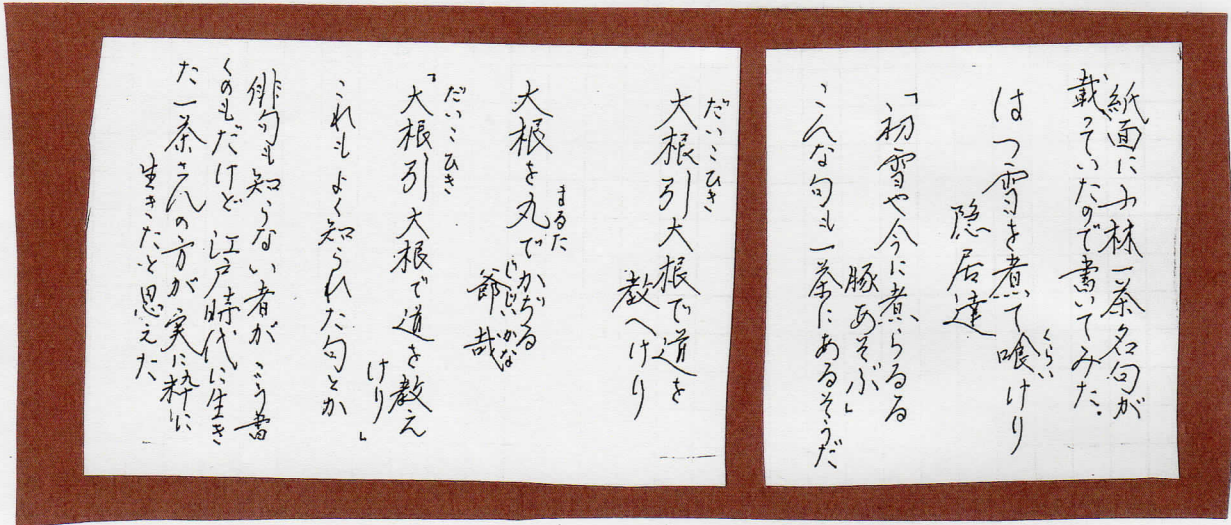 紙面に小林一茶名句が
載っていたので書いてみた。
はつ雪を煮て喰けり
くらい
隠居達
「初雪や今に煮らるる
豚あそぶ」
こんな句も一茶にあるそうだ
だいこひき
大根引大根で道を
教へけり
大根を丸でかぢる
まるた
爺哉
じじいかな
だいこひき
「大根引大根で道を教え
けり」
これもよく知られた句とか
俳句も知らない者がこう書
くのもだけど江戸時代に生き
た一茶さんの方が実に粋に
生きたと思えた